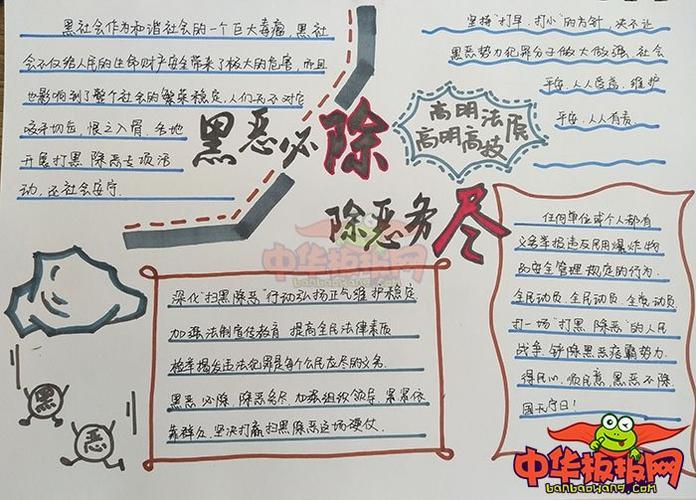 黑社会作为和谐社会的一个巨大毒瘤,黑社
会不仅给人民的生命财产安全带来了极大的危害,而且
也影响到了整个社会的繁荣稳定,人们无不对它
咬牙切齿,恨之入骨.各地
开展打黑除恶专项活
动,还社会安宁.
黑恶必除
除恶务尽
高明法医
高明高技
坚持"打早、打小"的方针,决不让
黑恶势力犯罪分子做大做强.社会
平安,人人受益,维护
平安,人人有责.
深化"扫黑除恶"行动弘扬正气维护稳定
加强法制宣传教育 提高全民法律素质
检举揭发违法犯罪是每个公民应尽的义务.
黑恶必除,除恶务尽.加强组织领导,紧紧依
靠群众,坚决打赢扫黑除恶这场硬仗.
任何单位或个人都有
义务举报违反民用爆炸物
品安全管理规定的行为.
全民动员,全民动员,全党动员
打一场"打黑、除恶"的人民
战争.铲除黑恶痞霸势力.
得民心,顺民意,黑恶不除,
国无宁日!
黑
恶
中华板报网
banbaowang.com
中华板报网
banbaowang.com